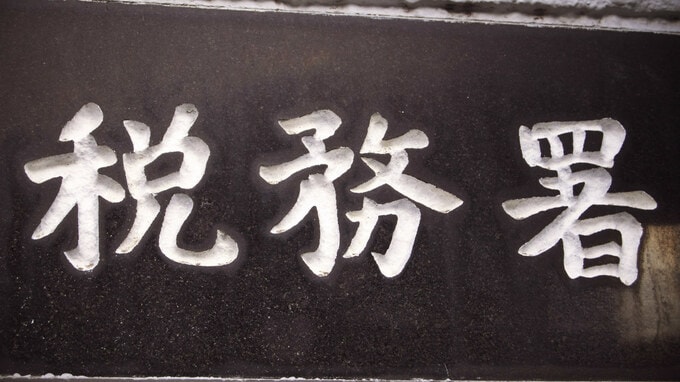 税務署